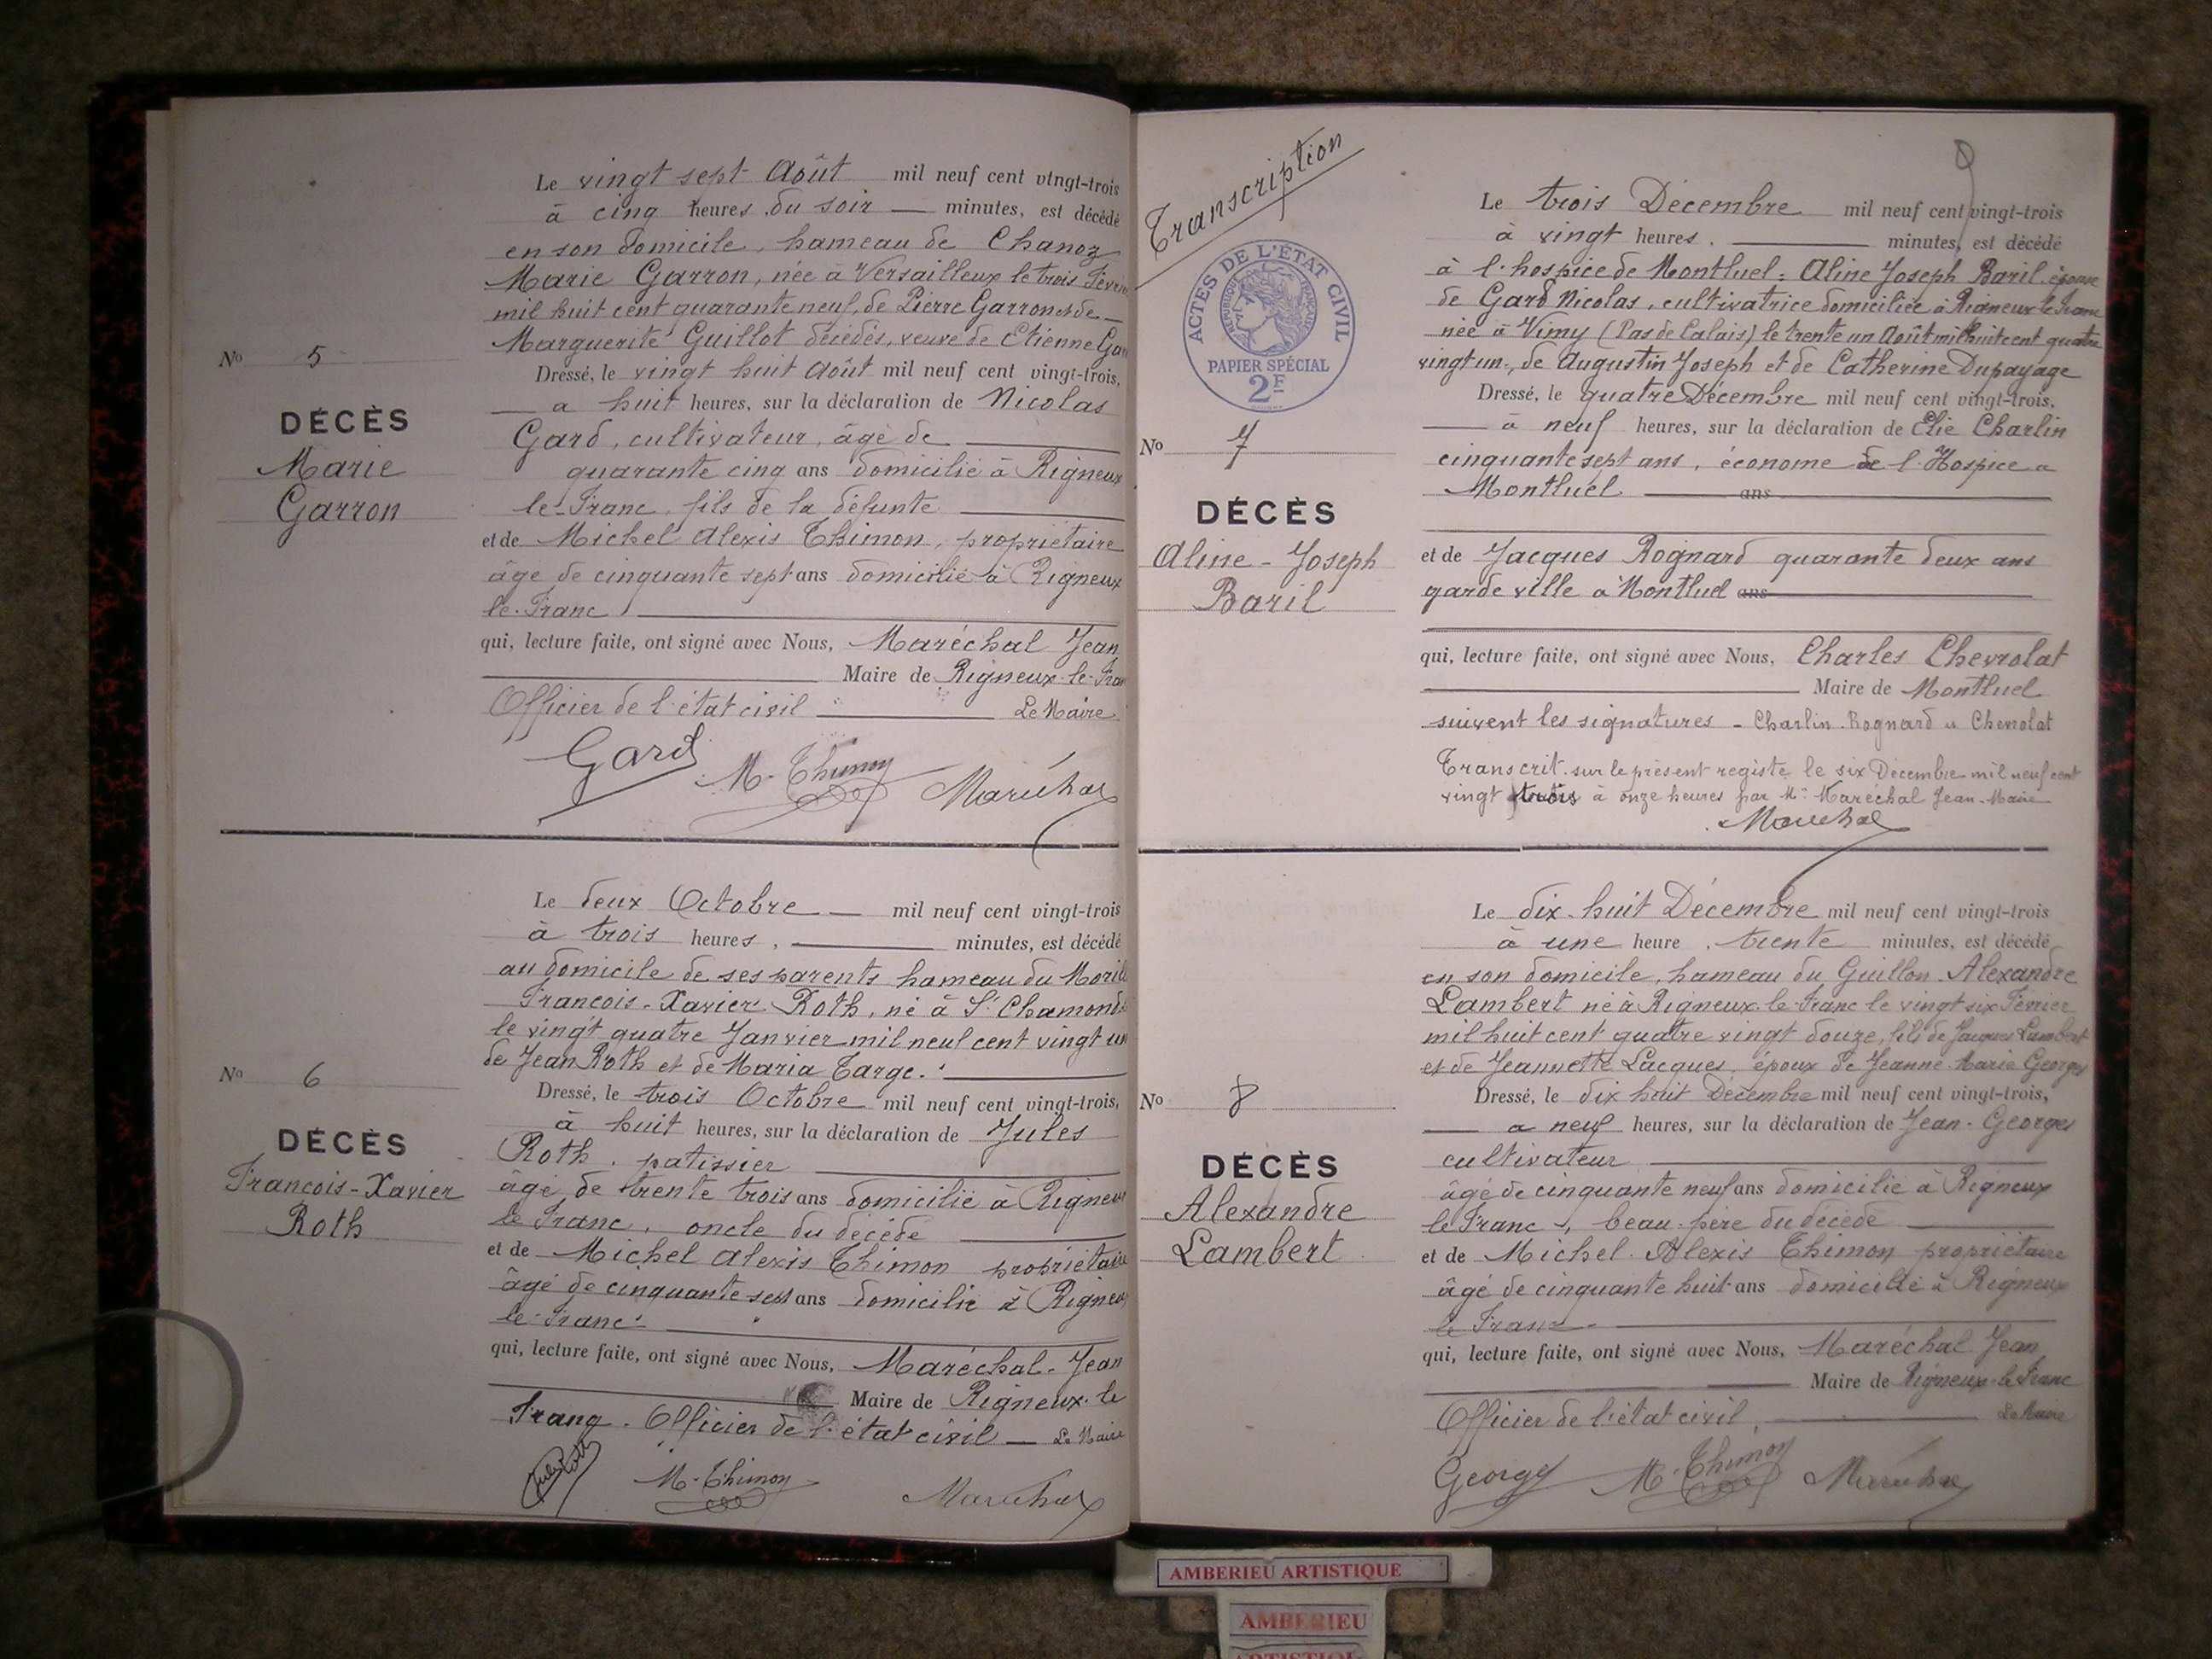 Le vingt sept Août mil neuf cent vingt-trois
à cinq heures du soir — minutes, est décédé
en son domicile, hameau de Chanoz
Marie Garron, née à Versailleux le trois Févri
mil huit cent quarante neuf, de Pierre Garron et de
Marguerite Guillot décédés, veuve de Etienne Ga
No 5
Dressé, le vingt huit Août mil neuf cent vingt-trois,
— a huit heures, sur la déclaration de Nicolas
DÉCÈS
Marie
Garron
Gard, cultivateur, âgé de
quarante cinq ans domicilié à Rigneux
le Franc, fils de la défunte
et de Michel Alexis Thimon, propriétaire
âgé de cinquante sept ans domicilié à Rigneux
le Franc
qui, lecture faite, ont signé avec Nous, Maréchal Jean
Maire de Rigneux-le-Fran
Officier de l'état civil — Le Maire
Gard M. Thimon Maréchal
Le deux Octobre — mil neuf cent vingt-trois
à trois heures, — minutes, est décédé
au domicile de ses parents hameau du
François-Xavier Roth, né à St Chamond
le vingt quatre Janvier mil neuf cent vingt un
de Jean Roth et de Maria Targe.
No 6
Dressé, le trois Octobre mil neuf cent vingt-trois,
à huit heures, sur la déclaration de Jules
DÉCÈS
Francois-Xavier
Roth
Roth, patissier
âgé de trente trois ans domicilié à Rigneux
le Franc, oncle du décédé
et de Michel Alexis Thimon propriétaire
âgé de cinquante sept ans domicilié à Rigneux
le Franc
qui, lecture faite, ont signé avec Nous, Maréchal-Jean
Maire de Rigneux-le
Franc. Officier de l'état civil — Le Maire
Jules Roth M. Thimon Maréchal
Transcription
ACTES DE L'ÉTAT CIVIL
RÉPUBLIQUE FRANÇAISE
PAPIER SPÉCIAL
2F
Le trois Décembre mil neuf cent vingt-trois
à vingt heures. — minutes, est décédé
à l'hospice de Montluel: Aline Joseph Baril, épouse
de Gard Nicolas, cultivatrice domiciliée à Rigneux le Franc
née à Vimy (Pas de Calais) le trente un Août mil huit cent quatre
vingt un, de Augustin Joseph et de Catherine Dupayage
No 7
Dressé, le quatre Décembre mil neuf cent vingt-trois,
— à neuf heures, sur la déclaration de Elie Charlin
DÉCÈS
Aline-Joseph
Baril
cinquante sept ans, économe de l'Hospice a
Montluel — ans
et de Jacques Rognard quarante deux ans
garde ville à Montluel ans
qui, lecture faite, ont signé avec Nous, Charles Chevrolat
Maire de Montluel
suivent les signatures - Charlin-Rognard et Chevrolat
Transcrit sur le présent registe le six Décembre mil neuf cent
vingt trois à onze heures par Mr Maréchal Jean-Maire
Maréchal
Le dix-huit Décembre mil neuf cent vingt-trois
à une heure, trente minutes, est décédé
en son domicile, hameau du Guillon. Alexandre
Lambert né à Rigneux-le-Franc le vingt six Février
mil huit cent quatre vingt douze, fils de Jacques Lambert
et de Jeannette Lacques, époux de Jeanne Marie Georges
No 8
Dressé, le dix huit Décembre mil neuf cent vingt-trois,
— a neuf heures, sur la déclaration de Jean-Georges
DÉCÈS
Alexandre
Lambert
cultivateur
âgé de cinquante neuf ans domicilié à Rigneux
le Franc, beau-père du décédé
et de Michel Alexis Thimon propriétaire
âgé de cinquante huit ans domicilié à Rigneux
le Franc
qui, lecture faite, ont signé avec Nous, Maréchal Jean
Maire de Rigneux-le Franc
Officier de l'état civil, — Le Maire
Georges M. Thimon Maréchal
AMBERIEU ARTISTIQUE
AMBERIEU
ARTISTIQUE